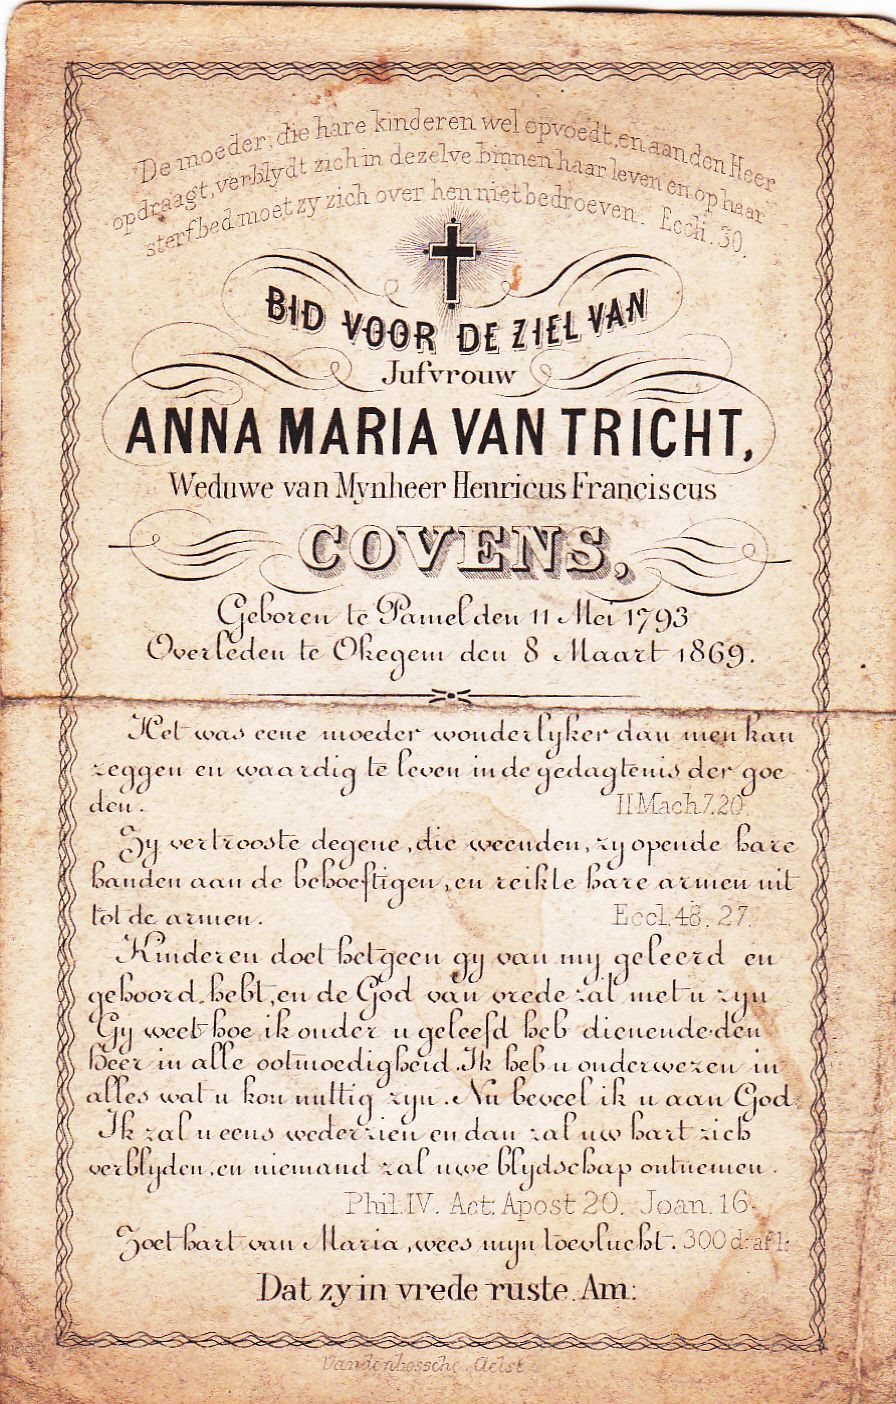 De moeder, die hare kinderen wel opvoedt, en aan den Heer
opdraagt, verblydt zich in dezelve binnen haar leven en op haar
sterfbed moet zy zich over hen niet bedroeven. Eccli. 30.
BID VOOR DE ZIEL VAN
Jufvrouw
ANNA MARIA VAN TRICHT,
Weduwe van Mynheer Henricus Franciscus
COVENS,
Geboren te Pamel den 11 Mei 1793
Overleden te Okegem den 8 Maart 1869.
Het was eene moeder wonderlyker dan men kan
zeggen en waardig te leven in de gedagtenis der goe
den. II Mach 7.20.
Zy vertrooste degene, die weenden, zy opende hare
handen aan de behoeftigen, en reikte hare armen uit
tot de armen. Eccl. 48. 27.
Kinderen doet hetgeen gy van my geleerd en
gehoord hebt, en de God van vrede zal met u zyn
Gy weet hoe ik onder u geleefd heb dienende den
Heer in alle ootmoedigheid. Ik heb u onderwezen in
alles wat u kon nuttig zyn. Nu beveel ik u aan God
Ik zal u eens wederzien en dan zal uw hart zich
verblyden, en niemand zal uwe blydschap ontnemen.
Phil. IV. Act: Apost 20. Joan. 16.
Zoet hart van Maria, wees myn toevlucht. 300 d: afl:
Dat zy in vrede ruste. Am:
Vandenbossche, Aelst